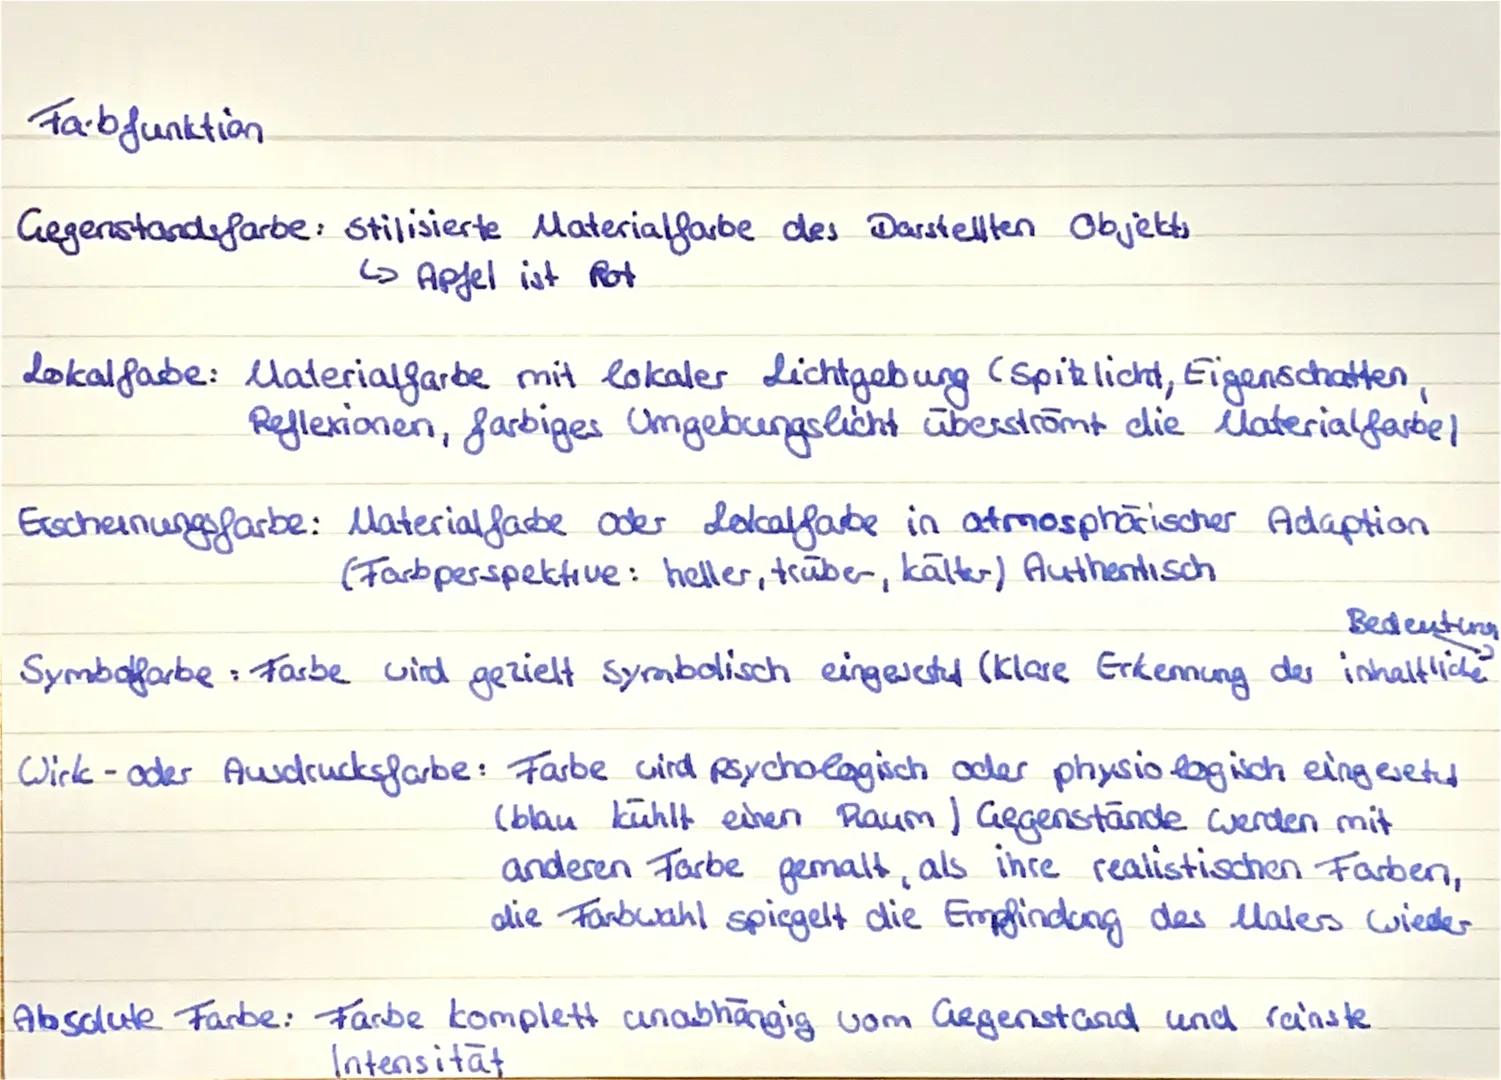 Farbfunktion
Gegenstandsfarbe: Stilisierte Materialfarbe des Darstellten Objekts
↳ Apfel ist Rot
Lokalfarbe: Materialfarbe mit lokaler Lichtgebung (Spitzlicht, Eigenschatten,
Reflexionen, farbiges Umgebungslicht überströmt die Materialfarbe)
Erscheinungsfarbe: Materialfarbe oder Lokalfarbe in atmosphärischer Adaption
(Farbperspektive: heller, trüber, kälter) Authentisch
Bedeutung
Symbolfarbe: Farbe wird gezielt symbolisch eingesetzt (Klare Erkennung der inhaltliche
Wirk- oder Ausdrucksfarbe: Farbe wird psychologisch oder physiologisch eingesetzt
(blau kühlt einen Raum) Gegenstände werden mit
anderen Farbe gemalt, als ihre realistischen Farben,
die Farbwahl spiegelt die Empfindung des Malers wieder
Absolute Farbe: Farbe komplett unabhängig vom Gegenstand und reinste
Intensität